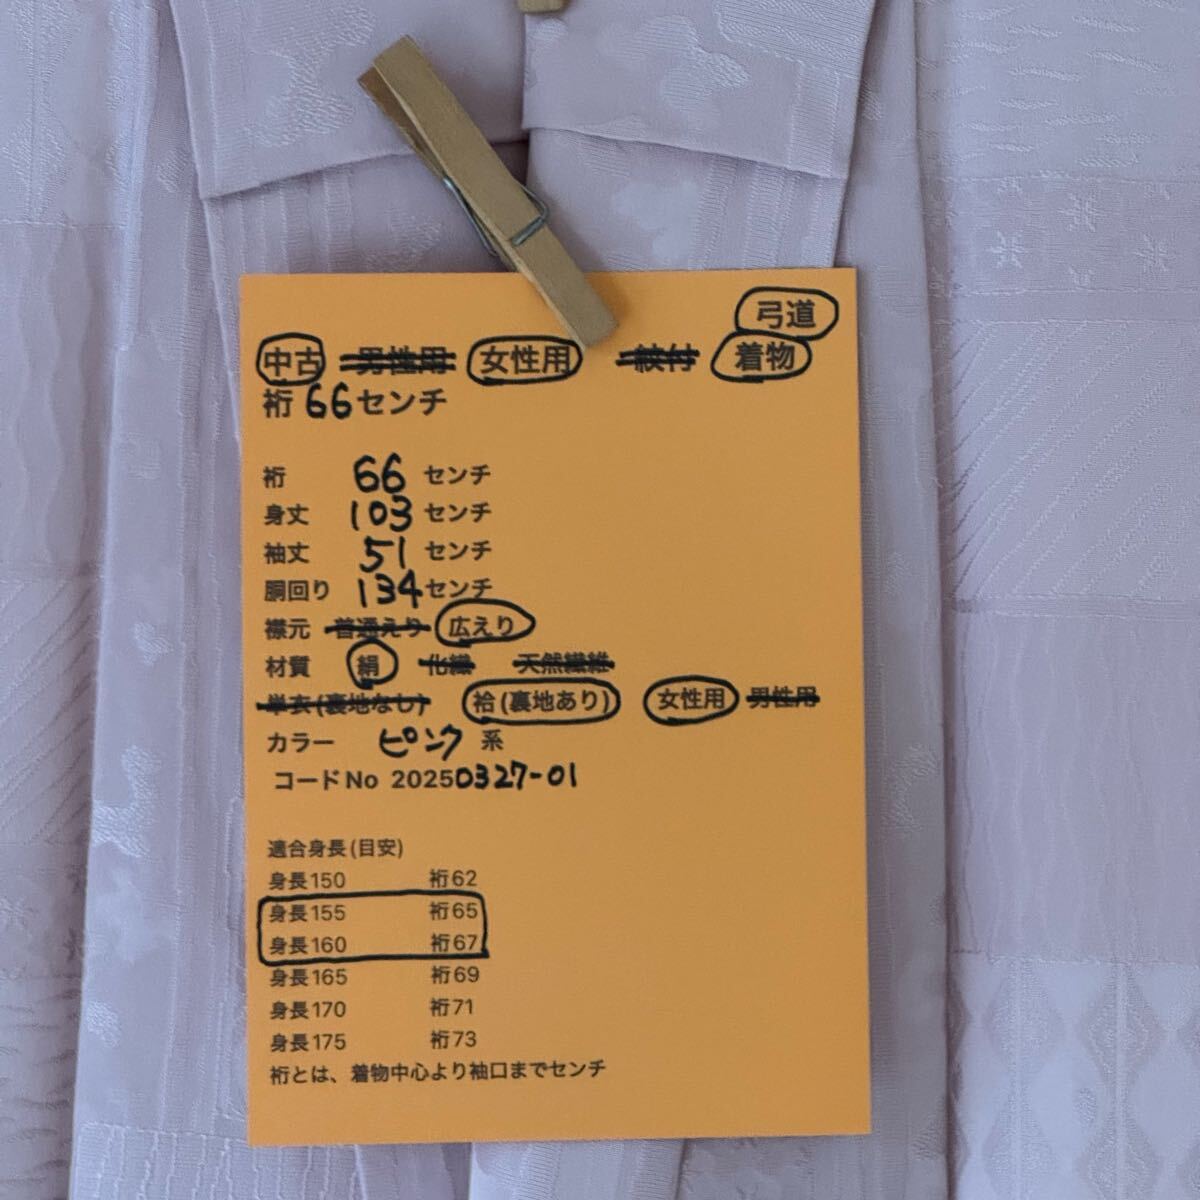 弓道
中古 男性用 女性用 紋付 着物
裄 66センチ
裄 66 センチ
身丈 103 センチ
袖丈 51 センチ
胴回り 134 センチ
襟元 普通えり 広えり
材質 絹 化繊 天然繊維
単衣(裏地なし) 袷(裏地あり) 女性用 男性用
カラー ピンク 系
コードNo 20250327-01
適合身長(目安)
身長150 裄62
身長155 裄65
身長160 裄67
身長165 裄69
身長170 裄71
身長175 裄73
裄とは、着物中心より袖口までセンチ